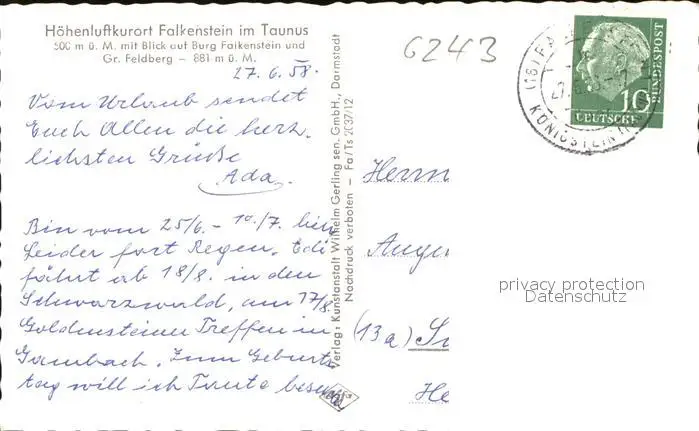 Höhenluftkurort Falkenstein im Taunus
500 m ü. M. mit Blick auf Burg Falkenstein und
Gr. Feldberg — 881 m ü. M.
27.6.58.
Vom Urlaub sendet
Euch Allen die herz-
lichsten Grüße
Ada.
Bin vom 25/6. - 10./7. hier
Leider fort Regen. Edi
fährt ab 18/8. in den
Schwarzwald, am 17/8.
Goldensteiner Treffen in
Gambach. Zum Geburts
tag will ich Traute besu
6243
Verlag: Kunstanstalt Wilhelm Gerling sen. GmbH., Darmstadt
Nachdruck verboten — Fa/Ts 2037/12
Herrn
(13a)
He
KÖNIGSTEIN
10
DEUTSCHE
BUNDESPOST
privacy protection
Datenschutz